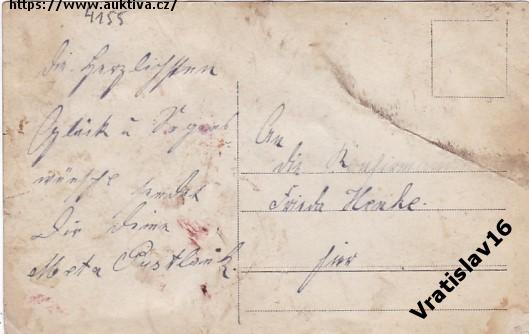 https://www.auktiva.cz/
4155
Die herzlichsten
Glück u Segens
wünsche sendet
Dir Deine
Meta
An
die
Frieda Henke.
hier
Vratislav16